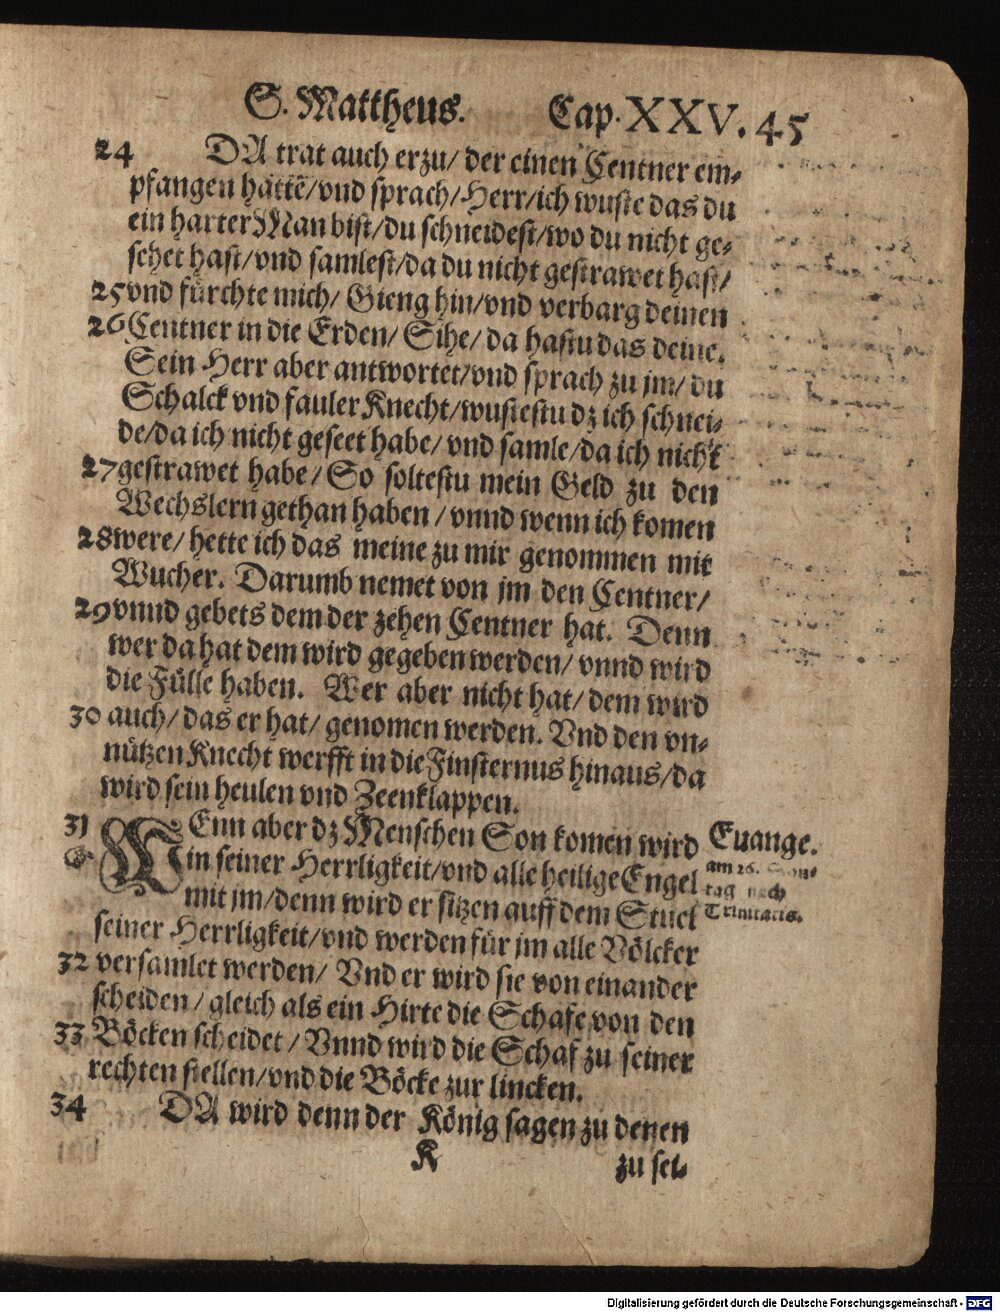 S. Mattheus. Cap. XXV. 45
24 DA trat auch erzu/ der einen Centner em-
pfangen hatte/ vnd sprach/ Herr/ ich wuste das du
ein harter Man bist/ du schneidest/ wo du nicht ge-
sehet hast/ vnd samlest/ da du nicht gestrawet hast/
25 vnd fürchte mich/ Gieng hin/ vnd verbarg deinen
26 Centner in die Erden/ Sihe/ da hastu das deine.
Sein Herr aber antwortet/ vnd sprach zu jm/ du
Schalck vnd fauler Knecht/ wustestu dz ich schnei-
de/ da ich nicht geseet habe/ vnd samle/ da ich nicht
27 gestrawet habe/ So soltestu mein Geld zu den
Wechslern gethan haben/ vnnd wenn ich komen
28 were/ hette ich das meine zu mir genommen mit
Wucher. Darumb nemet von jm den Centner/
29 vnnd gebets dem der zehen Centner hat. Denn
wer da hat dem wird gegeben werden/ vnnd wird
die Fülle haben. Wer aber nicht hat/ dem wird
30 auch/ das er hat/ genomen werden. Vnd den vn-
nützen Knecht werfft in die Finsternus hinaus/ da
wird sein heulen vnd Zeenklappen.
31 WEnn aber dz Menschen Son komen wird
in seiner Herrligkeit/ vnd alle heilige Engel
mit jm/ denn wird er sitzen auff dem Stuel
seiner Herrligkeit/ vnd werden für jm alle Völcker
32 versamlet werden/ Vnd er wird sie von einander
scheiden/ gleich als ein Hirte die Schafe von den
33 Böcken scheidet/ Vnnd wird die Schaf zu seiner
rechten stellen/ vnd die Böcke zur lincken.
34 DA wird denn der König sagen zu denen
K zu sei-
Euange.
am 26. Son-
tag nach
Trinitatis.
Digitalisierung gefördert durch die Deutsche Forschungsgemeinschaft - DFG